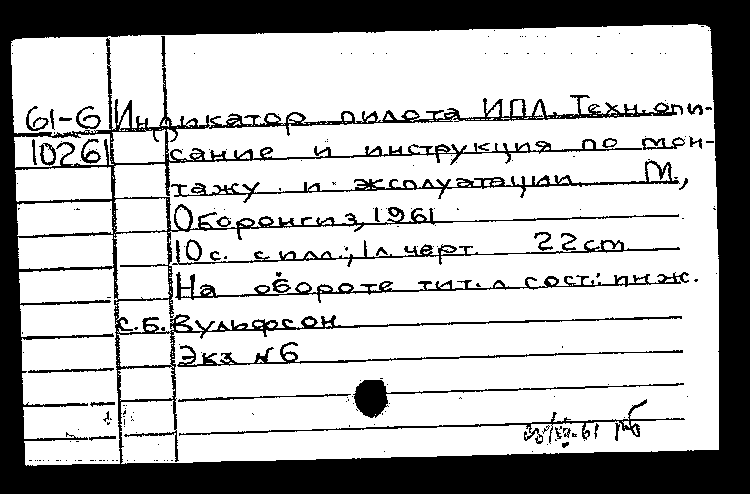 61-6 Индикатор пилота ИПЛ. Техн. опи-
10261 сание и инструкция по мон-
тажу и эксплуатации М.,
Оборонгиз, 1961
10с. с илл.; 1л. черт. 22cm
На обороте тит. л сост.: инж.
С.Б. Вульфсон
Экз N6